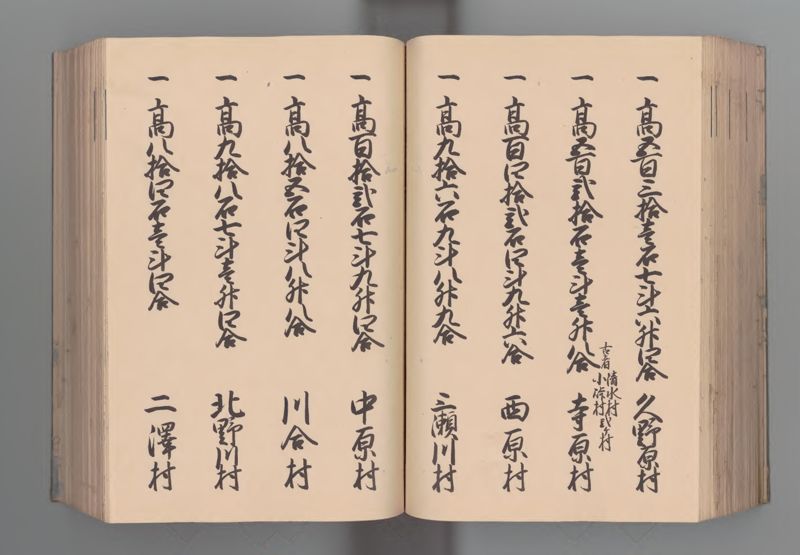 一 高五百三拾壱石七斗六升四合 久野原村
一 高五百弐拾石壱斗壱升八合 寺原村
古者
清水村
小澤村弐ケ村
一 高百四拾弐石四斗九升六合 西原村
一 高九拾六石九斗八升九合 三瀬川村
一 高百拾弐石七斗九升四合 中原村
一 高八拾五石四斗八升八合 川合村
一 高九拾八石七斗壱升四合 北野川村
一 高八拾四石壱斗四合 二澤村